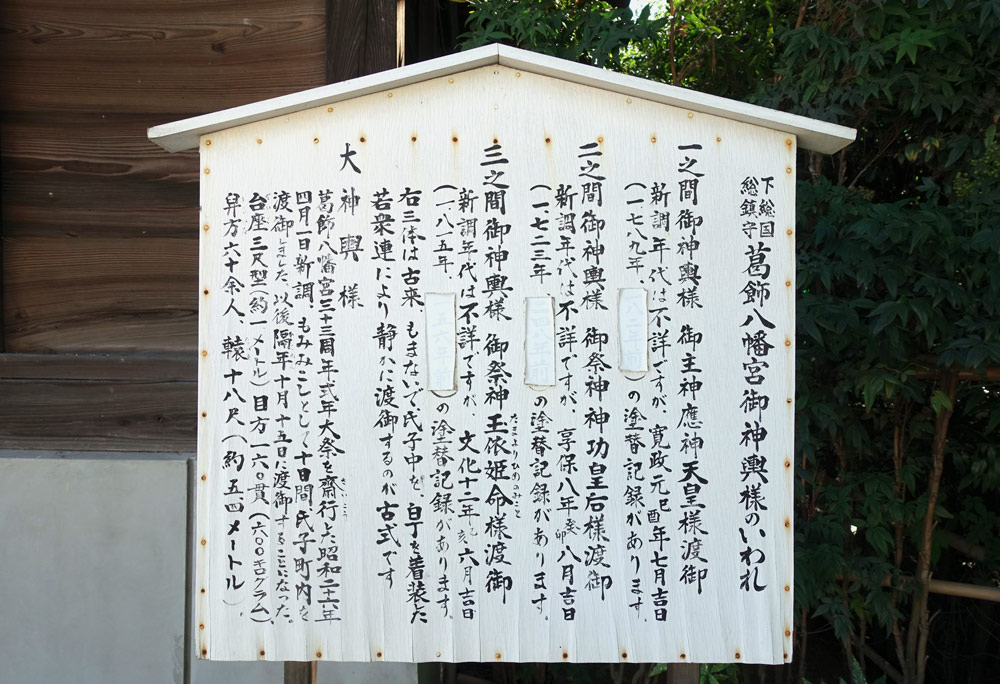 下総国
総鎮守
葛飾八幡宮御神輿様のいわれ
一之間御神輿様 御主神應神天皇様渡御
新調年代は不詳ですが、寛政元己酉年七月吉日
(一七八九年、
の塗替記録があります
二之間御神輿様 御祭神神功皇后様渡御
新調年代は不詳ですが、享保八年癸卯八月吉日
(一七二三年
の塗替記録があります。
三之間御神輿様 御祭神玉依姫命様渡御
たまよりひめのみこと
新調年代は不詳ですが、文化十二年乙亥六月吉日
(一八一五年、
の塗替記録があります。
右三体は古来、もまないで氏子中を、白丁を着装した
若衆連により静かに渡御するのが古式です
大神輿様
葛飾八幡宮三十三周年式年大祭を斎行した昭和二十六年
さいこう
四月一日新調。もみみこしとして十日間氏子町内を
渡御しました。以後隔年十月十五日に渡御することになった。
台座三尺型(約一メートル)目方一六〇貫(六〇〇キログラム)、
舁方六十余人、轅十八尺(約五.四メートル)、